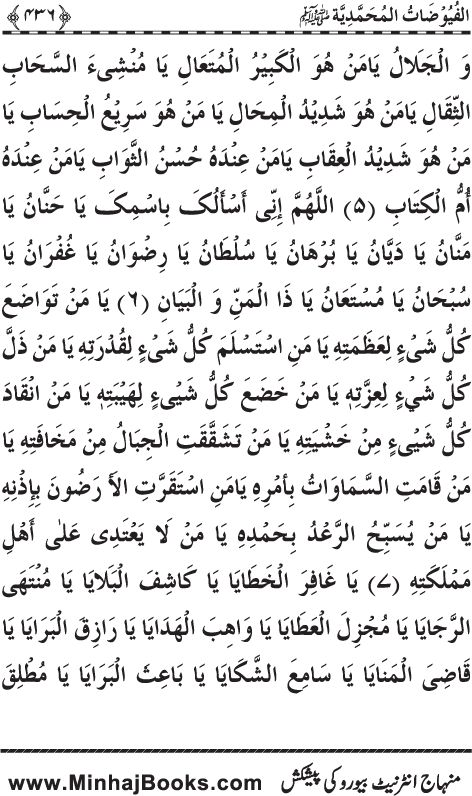 الفُیُوْضَاتُ المُحَمَّدِیَّة ﷺ ﴿۴۳۶﴾
وَ الْجَلَالُ یَامَنْ هُوَ الْكَبِیْرُ الْمُتَعَالِ یَا مُنْشِیءَ السَّحَابِ
الثِّقَالِ یَامَنْ هُوَ شَدِیْدُ الْمِحَالِ یَا مَنْ هُوَ سَرِیْعُ الْحِسَابِ یَا
مَنْ هُوَ شَدِیْدُ الْعِقَابِ یَامَنْ عِنْدَهُ حُسْنُ الثَّوَابِ یَامَنْ عِنْدَهُ
أُمُّ الْكِتَابِ (۵) اللَّهُمَّ إِنِّی أَسْأَلُكَ بِاسْمِكَ یَا حَنَّانُ یَا
مَنَّانُ یَا دَیَّانُ یَا بُرْهَانُ یَا سُلْطَانُ یَا رِضْوَانُ یَا غُفْرَانُ یَا
سُبْحَانُ یَا مُسْتَعَانُ یَا ذَا الْمَنِّ وَ الْبَیَانِ (۶) یَا مَنْ تَوَاضَعَ
كُلُّ شَیْءٍ لِعَظَمَتِهِ یَا مَنِ اسْتَسْلَمَ كُلُّ شَیْءٍ لِقُدْرَتِهِ یَا مَنْ ذَلَّ
كُلُّ شَيْءٍ لِعِزَّتِهِ یَا مَنْ خَضَعَ كُلُّ شَیْیءٍ لِهَیْبَتِهِ یَا مَنْ انْقَادَ
كُلُّ شَیْیءٍ مِنْ خَشْیَتِهِ یَا مَنْ تَشَقَّقَتِ الْجِبَالُ مِنْ مَخَافَتِهِ یَا
مَنْ قَامَتِ السَّمَاوَاتُ بِأمْرِهِ یَامَنِ اسْتَقَرَّتِ الأَرَضُونَ بِإِذْنِهِ
یَا مَنْ یُسَبِّحُ الرَّعْدُ بِحَمْدِهِ یَا مَنْ لَا یَعْتَدِی عَلیٰ أَهْلِ
مَمْلَكَتِهِ (۷) یَا غَافِرَ الْخَطَایَا یَا كَاشِفَ الْبَلَایَا یَا مُنْتَهَی
الرَّجَایَا یَا مُجْزِلَ الْعَطَایَا یَا وَاهِبَ الْهَدَایَا یَا رَازِقَ الْبَرَایَا یَا
قَاضِیَ الْمَنَایَا یَا سَامِعَ الشَّكَایَا یَا بَاعِثَ الْبَرَایَا یَا مُطْلِقَ
منہاج انٹرنیٹ بیورو کی پیشکش www.MinhajBooks.com